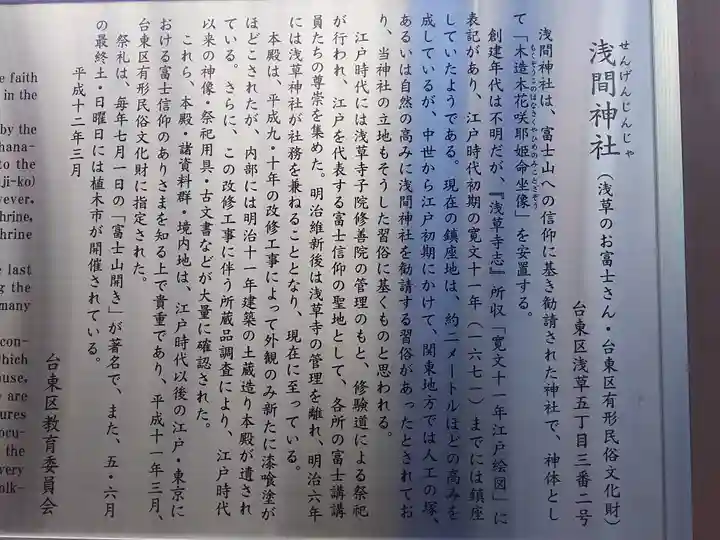 せんげんじんじゃ
浅間神社(浅草のお富士さん・台東区有形民俗文化財)
台東区浅草五丁目三番二号
浅間神社は、富士山への信仰に基き勧請された神社で、神体とし
もくぞうこのはなさくやひめのみことざぞう
て「木造木花咲耶姫命坐像」を安置する。
創建年代は不明だが、『浅草寺志』所収「寛文十一年江戸絵図」に
表記があり、江戸時代初期の寛文十一年(一六七一)までには鎮座
していたようである。現在の鎮座地は、約二メートルほどの高みを
成しているが、中世から江戸初期にかけて、関東地方では人工の塚、
あるいは自然の高みに浅間神社を勧請する習俗があったとされてお
り、当神社の立地もそうした習俗に基くものと思われる。
江戸時代には浅草寺子院修善院の管理のもと、修験道による祭祀
が行われ、江戸を代表する富士信仰の聖地として、各所の富士講講
員たちの尊崇を集めた。明治維新後は浅草寺の管理を離れ、明治六年
には浅草神社が社務を兼ねることとなり、現在に至っている。
本殿は、平成九・十年の改修工事によって外観のみ新たに漆喰塗が
ほどこされたが、内部には明治十一年建築の土蔵造り本殿が遺され
ている。さらに、この改修工事に伴う所蔵品調査により、江戸時代
以来の神像・祭祀用具・古文書などが大量に確認された。
これら、本殿・諸資料群・境内地は、江戸時代以後の江戸・東京に
おける富士信仰のありさまを知る上で貴重であり、平成十一年三月、
台東区有形民俗文化財に指定された。
祭礼は、毎年七月一日の「富士山開き」が著名で、また、五・六月
の最終土・日曜日には植木市が開催されている。
平成十二年三月
台東区教育委員会
e faith
in the
by the
hana-
to the
ji-ko)
wever,
shrine,
shrine
e last
g the
many
con-
which
use,
are
ures
ocu-
the
very
olk-